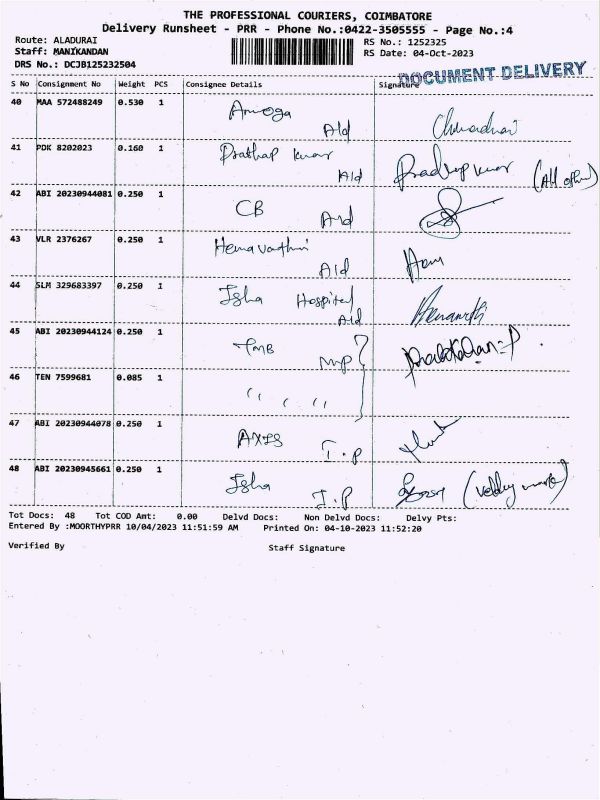 THE PROFESSIONAL COURIERS, COIMBATORE
Delivery Runsheet - PRR - Phone No.:0422-3505555 - Page No.:4
Route: ALADURAI
RS No.: 1252325
Staff: MANIKANDAN
RS Date: 04-Oct-2023
DRS No.: DCJB125232504
DOCUMENT DELIVERY
S No Consignment No Weight PCS Consignee Details Signature
40 MAA 572488249 0.530 1 Amoga
Ald
41 PDK 8202023 0.160 1 Prathap kumar
Ald Pradeep kumar
42 ABI 20230944081 0.250 1 CB
Ald
43 VLR 2376267 0.250 1 Hemavathi
Ald Hem
44 SLM 329683397 0.250 1 Isha Hospital
Ald
45 ABI 20230944124 0.250 1 TMB
MP
46 TEN 7599681 0.085 1
47 ABI 20230944078 0.250 1 AXIS
T.P
48 ABI 20230945661 0.250 1 Isha
T.P
Tot Docs: 48 Tot COD Amt: 0.00 Delvd Docs: Non Delvd Docs: Delvy Pts:
Entered By :MOORTHYPRR 10/04/2023 11:51:59 AM Printed On: 04-10-2023 11:52:20
Verified By Staff Signature